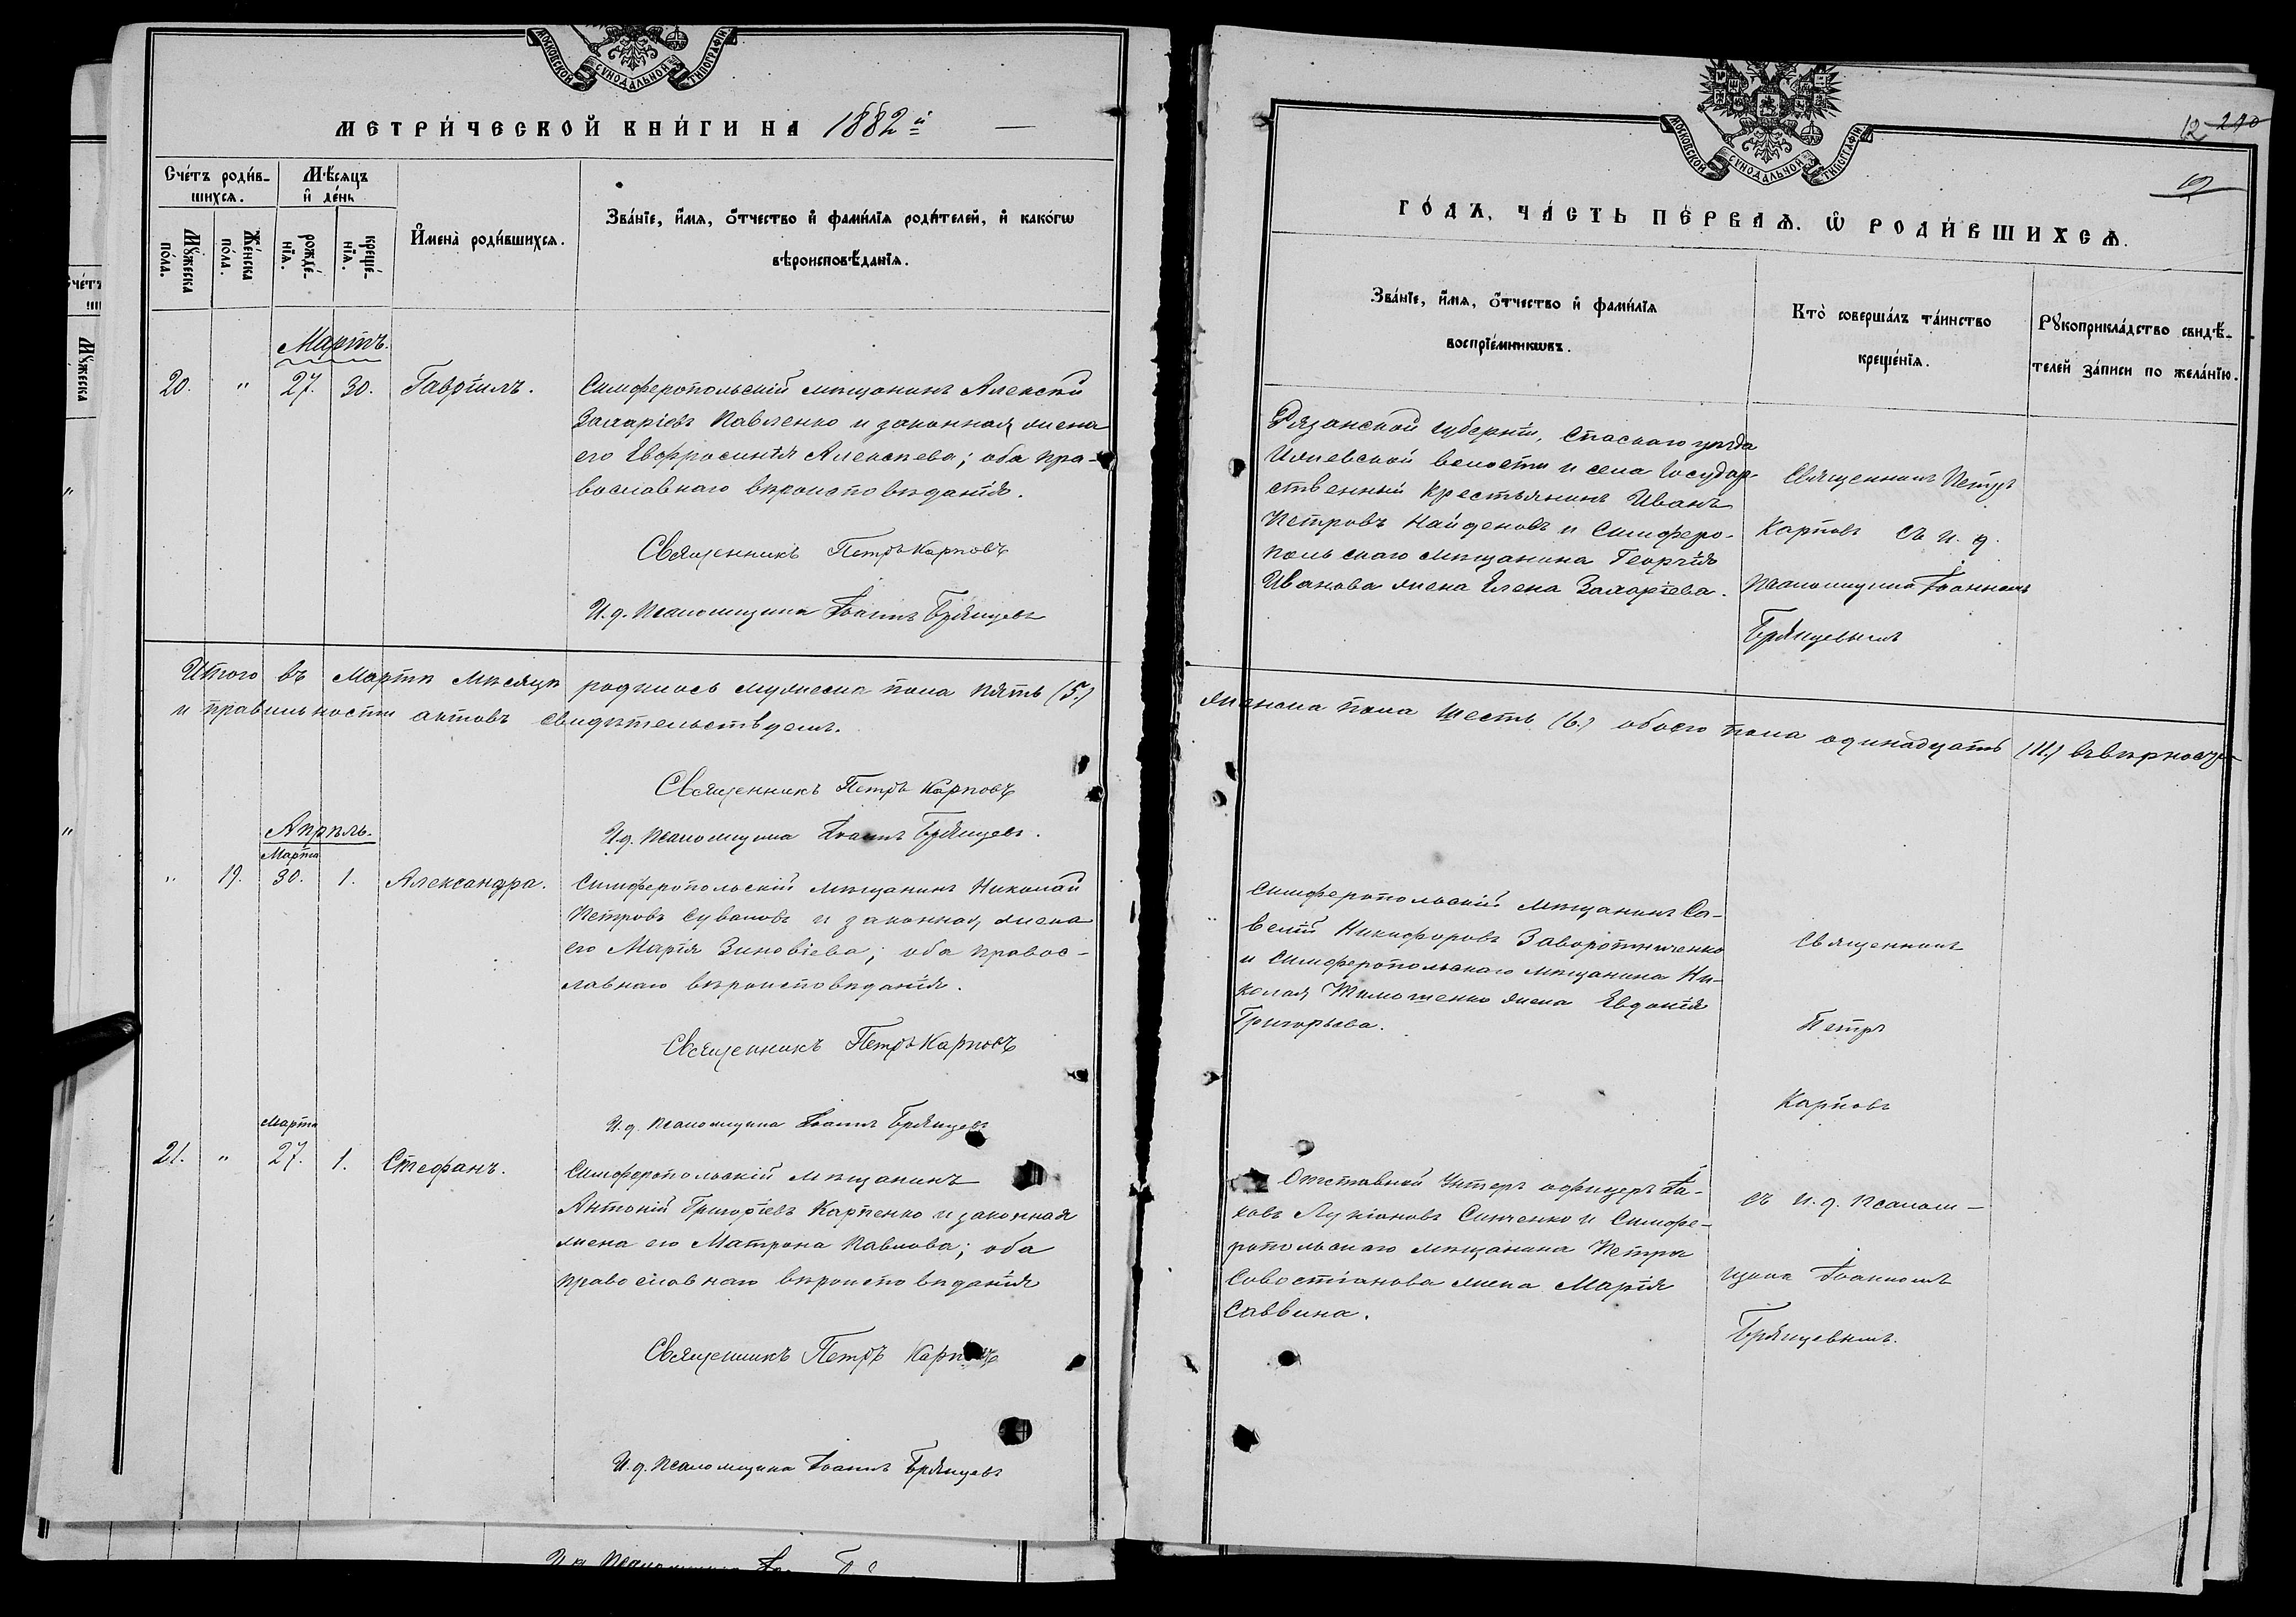 МОСКОВСКОЙ СУНОДАЛЬНОЙ ТИПОГРАФІИ
МЕТРИ́ЧЕСКОЙ КНИ́ГИ НА 1882й
Сче́тъ роди́в-
шихсѧ.
Мѣ́сѧцъ
и҆ де́нь
Мꙋ́жеска
по́ла.
Же́нска
по́ла.
рожде́-
нїѧ.
креще́-
нїѧ.
И҆мена̀ роди́вшихсѧ.
Зва́нїе, и҆́мѧ, ѻ҆́тчество и҆ фами́лїѧ роди́телей, и҆ како́гѡ
вѣроисповѣ́данїѧ.
Мартъ.
20. " 27. 30. Гавріилъ.
Симферопольскій мѣщанинъ Алексѣй
Захаріевъ Павленко и законная жена
его Евфросинія Алексѣева; оба пра-
вославнаго вѣроисповѣданія.
Священникъ Петръ Карповъ
И. д. Псаломщика Іоаннъ Брянцевъ
Итого въ Мартѣ мѣсяцѣ родилось мужеска пола пять (5.)
и правильности актовъ свидѣтельствуемъ.
Священникъ Петръ Карповъ
И. д. Псаломщика Іоаннъ Брянцевъ.
Апрѣль.
Марта
" 19. 30. 1. Александра.
Симферопольскій мѣщанинъ Николай
Петровъ Суваловъ и законная жена
его Марія Зиновіева; оба правос-
лавнаго вѣроисповѣданія.
Священникъ Петръ Карповъ
И. д. Псаломщика Іоаннъ Брянцевъ
Марта
21. " 27. 1. Стефанъ.
Симферопольскій мѣщанинъ
Антоній Григоріевъ Карпенко и законная
жена его Матрона Павлова; оба
православнаго вѣроисповѣданія
Священникъ Петръ Карповъ
И. д. Псаломщика Іоаннъ Брянцевъ
МОСКОВСКОЙ СУНОДАЛЬНОЙ ТИПОГРАФІИ
12 210
ГО́ДЪ, ЧА́СТЬ ПЕ́РВАѦ. Ѡ҆ РОДИ́ВШИХСѦ.
Зва́нїе, и҆́мѧ, ѻ҆́тчество и҆ фами́лїѧ
воспрїе́мникѡвъ.
Кто̀ соверша́лъ та́инство
креще́нїѧ.
Рꙋкоприкла́дство свидѣ́-
телей за́писи по жела́нїю.
Рязанской губерніи, Спаскаго уѣзда
Ижевской волости и села Государ-
ственный крестьянинъ Иванъ
Петровъ Найденовъ и Симферо-
польскаго мѣщанина Георгія
Иванова жена Елена Захаріева.
Священникъ Петръ
Карповъ съ и. д.
Псаломщика Іоанномъ
Брянцевымъ
женска пола шесть (6.) обоего пола одинадцать (11.) въ вѣрности
Симферопольскій мѣщанинъ Са-
велій Никифоровъ Заворотниченко
и Симферопольскаго мѣщанина Ни-
колая Тимошенко жена Евдокія
Григорьева.
Священникъ
Петръ
Карповъ
Отставной Унтеръ офицеръ Іа-
ковъ Лукіановъ Синченко и Симфе-
ропольскаго мѣщанина Петра
Савостіанова жена Марія
Саввина.
съ и. д. Псалом-
щика Іоанномъ
Брянцевымъ.